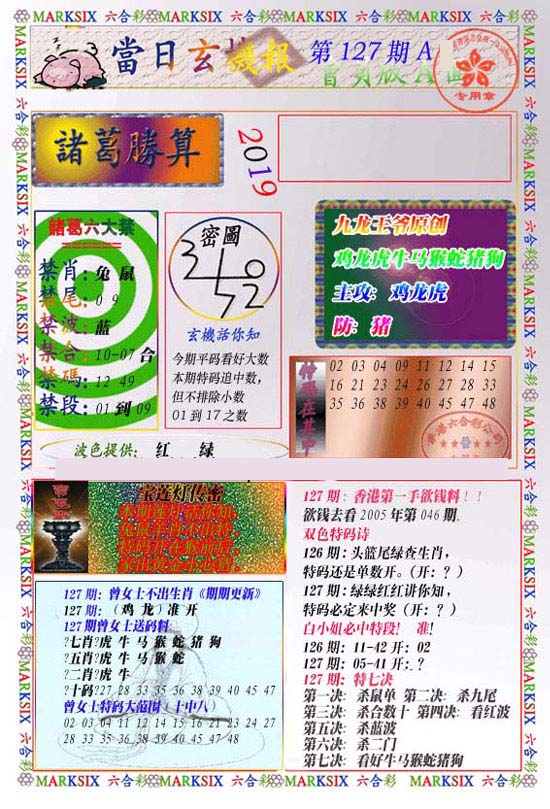 MARKSIX 六合彩 MARKSIX 六合彩 MARKSIX 六合彩 MARKSIX 六合彩
當日玄機报 第127期A
专用章
諸葛勝算
2019
諸葛六大禁
禁肖：兔 鼠
禁尾：0 9
禁波：蓝
禁合：10-07 合
禁碼：12 49
禁段：01 到 09
密圖
玄機話你知
今期平码看好大数
本期特码追中数,
但不排除小数
01 到 17 之数
九龙王爷原创
鸡龙虎牛马猴蛇猪狗
主攻：鸡龙虎
防：猪
02 03 04 09 11 12 14 15
16 21 23 24 26 27 28 33
35 36 38 39 40 45 47 48
波色提供：红 绿
宝莲灯传密
127 期：曾女士不出生肖《期期更新》
127 期：（鸡 龙）准 开
127期曾女士送码料:
?七肖?虎 牛 马 猴 蛇 猪 狗
?五肖?虎 牛 马 猴 蛇
?二肖?虎 牛
?十码?27 28 33 35 36 38 39 40 45 47
曾女士特码大范围（十中八）
02 03 04 11 12 14 15 16 21 23 24 27
28 33 35 36 38 39 40 45 47 48
127 期：香港第一手欲钱料！！
欲钱去看 2005 年第 046 期.
双色特码诗
126 期：头篮尾绿查生肖,
特码还是单数开。（开：？）
127 期：绿绿红红讲你知,
特码必定来中奖（开：？）
白小姐必中特段! 准!
126 期：11-42 开：02
127 期：05-41 开：?
127 期：特七决
第一决：杀鼠单 第二决：杀九尾
第三决：杀合数十 第四决：看红波
第五决：杀蓝波
第六决：杀二门
第七决：看好牛马猴蛇猪狗
MARKSIX 六合彩 MARKSIX 六合彩 MARKSIX 六合彩 MARKSIX 六合彩